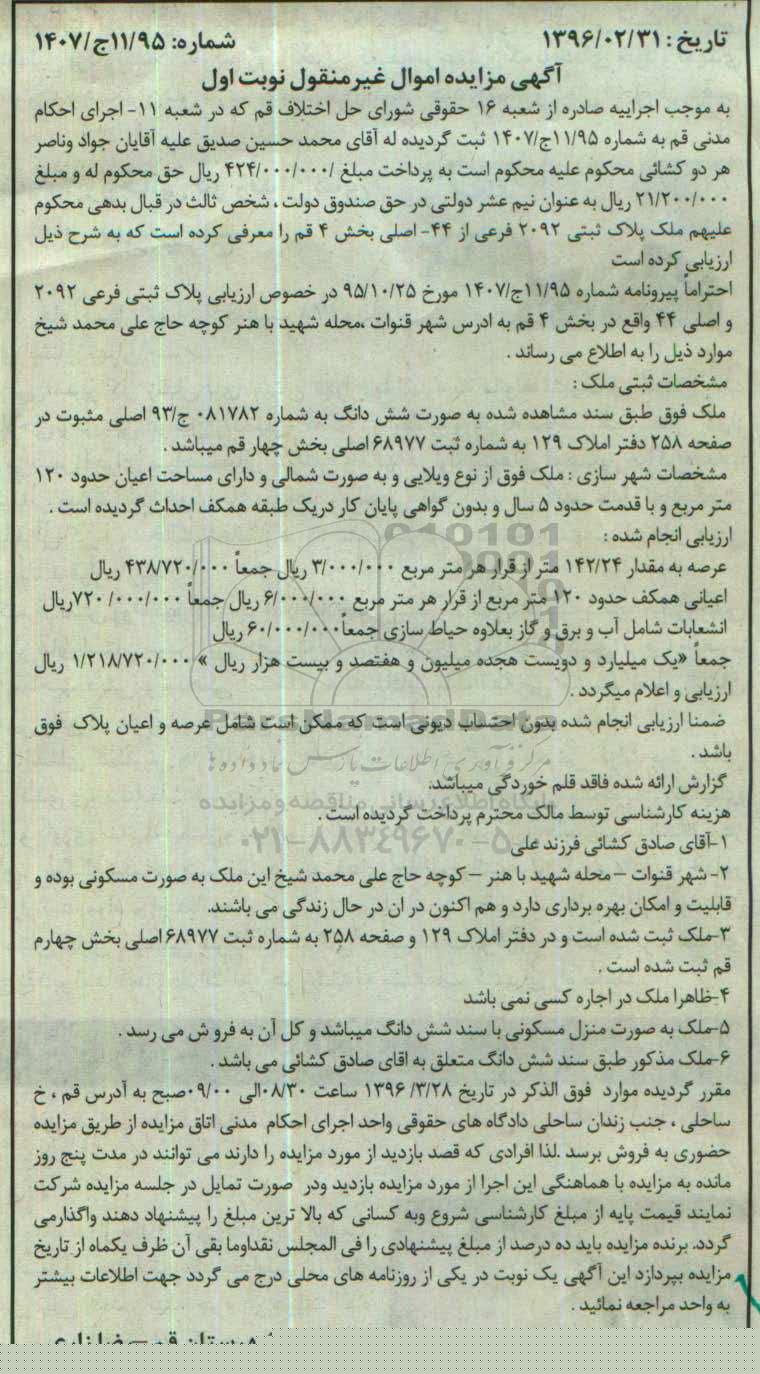 تاریخ : ۱۳۹۶/۰۲/۳۱
شماره: ۱۱/۹۵ج/۱۴۰۷
آگهی مزایده اموال غیرمنقول نوبت اول
به موجب اجراییه صادره از شعبه ۱۶ حقوقی شورای حل اختلاف قم که در شعبه ۱۱- اجرای احکام
مدنی قم به شماره ۱۱/۹۵ج/۱۴۰۷ ثبت گردیده له آقای محمد حسین صدیق علیه آقایان جواد وناصر
هر دو کشائی محکوم علیه محکوم است به پرداخت مبلغ /۴۲۴/۰۰۰/۰۰۰ ریال حق محکوم له و مبلغ
۲۱/۲۰۰/۰۰۰ ریال به عنوان نیم عشر دولتی در حق صندوق دولت ، شخص ثالث در قبال بدهی محکوم
علیهم ملک پلاک ثبتی ۲۰۹۲ فرعی از ۴۴- اصلی بخش ۴ قم را معرفی کرده است که به شرح ذیل
ارزیابی کرده است
احتراماً پیرونامه شماره ۱۱/۹۵ج/۱۴۰۷ مورخ ۹۵/۱۰/۲۵ در خصوص ارزیابی پلاک ثبتی فرعی ۲۰۹۲
و اصلی ۴۴ واقع در بخش ۴ قم به ادرس شهر قنوات ،محله شهید با هنر کوچه حاج علی محمد شیخ
موارد ذیل را به اطلاع می رساند .
مشخصات ثبتی ملک :
ملک فوق طبق سند مشاهده شده به صورت شش دانگ به شماره ۰۸۱۷۸۲ ج/۹۳ اصلی مثبوت در
صفحه ۲۵۸ دفتر املاک ۱۲۹ به شماره ثبت ۶۸۹۷۷ اصلی بخش چهار قم میباشد .
مشخصات شهر سازی : ملک فوق از نوع ویلایی و به صورت شمالی و دارای مساحت اعیان حدود ۱۲۰
متر مربع و با قدمت حدود ۵ سال و بدون گواهی پایان کار دریک طبقه همکف احداث گردیده است .
ارزیابی انجام شده :
عرصه به مقدار ۱۴۲/۲۴ متر از قرار هر متر مربع ۳/۰۰۰/۰۰۰ ریال جمعاً ۴۳۸/۷۲۰/۰۰۰ ریال
اعیانی همکف حدود ۱۲۰ متر مربع از قرار هر متر مربع ۶/۰۰۰/۰۰۰ ریال جمعاً ۷۲۰/۰۰۰/۰۰۰ریال
انشعابات شامل آب و برق و گاز بعلاوه حیاط سازی جمعاً۶۰/۰۰۰/۰۰۰ ریال
جمعاً «یک میلیارد و دویست هجده میلیون و هفتصد و بیست هزار ریال » ۱/۲۱۸/۷۲۰/۰۰۰ ریال
ارزیابی و اعلام میگردد .
ضمنا ارزیابی انجام شده بدون احتساب دیونی است که ممکن است شامل عرصه و اعیان پلاک فوق
باشد .
گزارش ارائه شده فاقد قلم خوردگی میباشد.
هزینه کارشناسی توسط مالک محترم پرداخت گردیده است .
۱-آقای صادق کشائی فرزند علی
۲- شهر قنوات –محله شهید با هنر – کوچه حاج علی محمد شیخ این ملک به صورت مسکونی بوده و
قابلیت و امکان بهره برداری دارد و هم اکنون در ان در حال زندگی می باشند.
۳-ملک ثبت شده است و در دفتر املاک ۱۲۹ و صفحه ۲۵۸ به شماره ثبت ۶۸۹۷۷ اصلی بخش چهارم
قم ثبت شده است .
۴-ظاهرا ملک در اجاره کسی نمی باشد
۵-ملک به صورت منزل مسکونی با سند شش دانگ میباشد و کل آن به فرو ش می رسد .
۶-ملک مذکور طبق سند شش دانگ متعلق به اقای صادق کشائی می باشد .
مقرر گردیده موارد فوق الذکر در تاریخ ۱۳۹۶/۳/۲۸ ساعت ۰۸/۳۰الی ۰۹/۰۰صبح به آدرس قم ، خ
ساحلی ، جنب زندان ساحلی دادگاه های حقوقی واحد اجرای احکام مدنی اتاق مزایده از طریق مزایده
حضوری به فروش برسد .لذا افرادی که قصد بازدید از مورد مزایده را دارند می توانند در مدت پنج روز
مانده به مزایده با هماهنگی این اجرا از مورد مزایده بازدید ودر صورت تمایل در جلسه مزایده شرکت
نمایند قیمت پایه از مبلغ کارشناسی شروع وبه کسانی که بالا ترین مبلغ را پیشنهاد دهند واگذارمی
گردد. برنده مزایده باید ده درصد از مبلغ پیشنهادی را فی المجلس نقداوما بقی آن ظرف یکماه از تاریخ
مزایده بپردازد این آگهی یک نوبت در یکی از روزنامه های محلی درج می گردد جهت اطلاعات بیشتر
به واحد مراجعه نمائید .
ParsNamadData
مرکز فرآوری اطلاعات پارس نماد داده ها
پایگاه اطلاع رسانی مناقصه و مزایده
۰۲۱-۸۸۳۴۹۶۷۰-۵